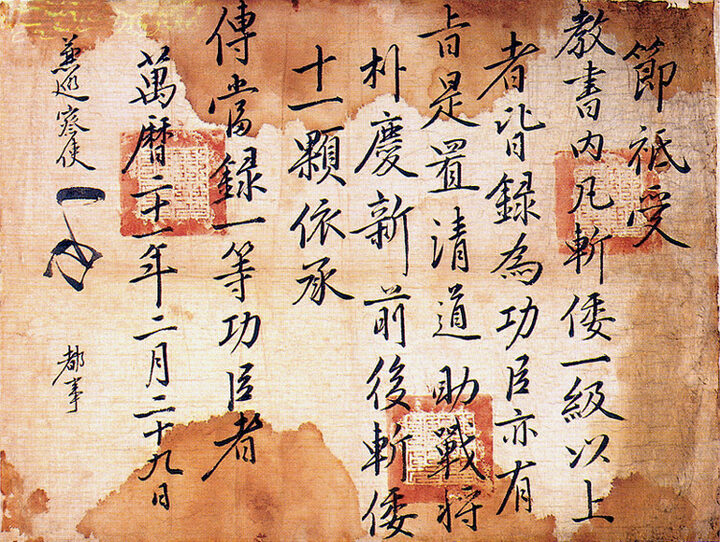 節祗受
教書内凡斬倭一級以上
者皆録為功臣亦有
旨是置清道助戰将
朴慶新前後斬倭
十一顆依承
傳當録一等功臣者
萬曆二十一年二月二十九日
兼巡察使
都事